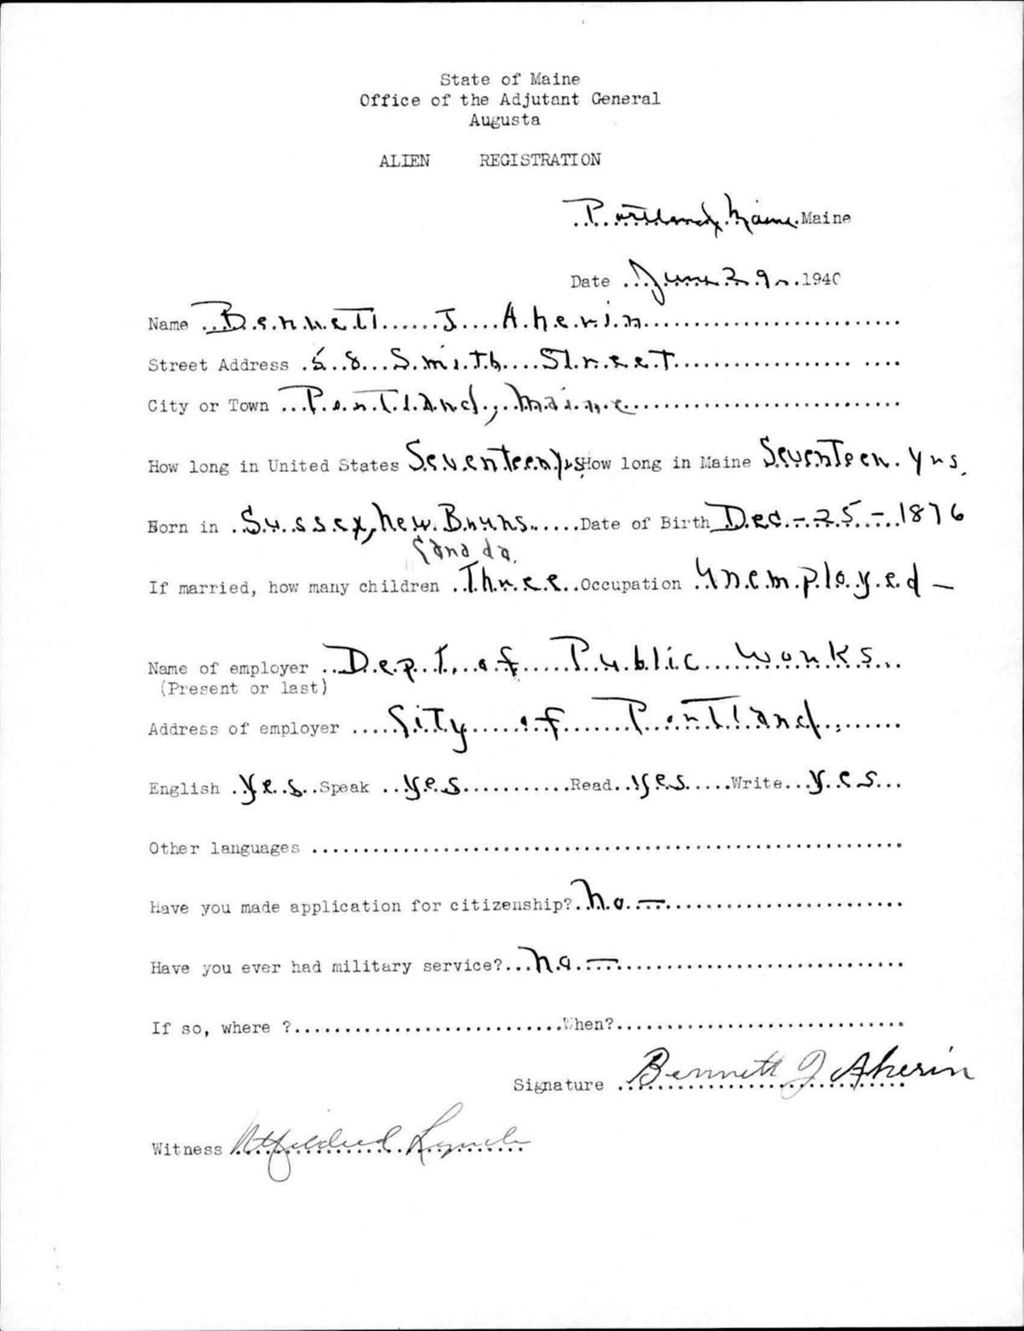 State of Maine
Office of the Adjutant General
Augusta
ALIEN REGISTRATION
Portland, Maine. Maine
Date June 29 1940
Name Bennett J Aherin
Street Address 58 Smith Street
City or Town Portland, Maine
How long in United States Seventeen yrs How long in Maine Seventeen yrs.
Born in Sussex, New Bruns. Date of Birth Dec - 25 - 1876
Canada.
If married, how many children Three Occupation Unemployed -
Name of employer Dept. of Public Works
(Present or last)
Address of employer City of Portland.
English Yes Speak Yes Read Yes Write Yes
Other languages
Have you made application for citizenship? No -
Have you ever had military service? No -
If so, where ? When?
Signature Bennett J Aherin
Witness Mildred Lynch